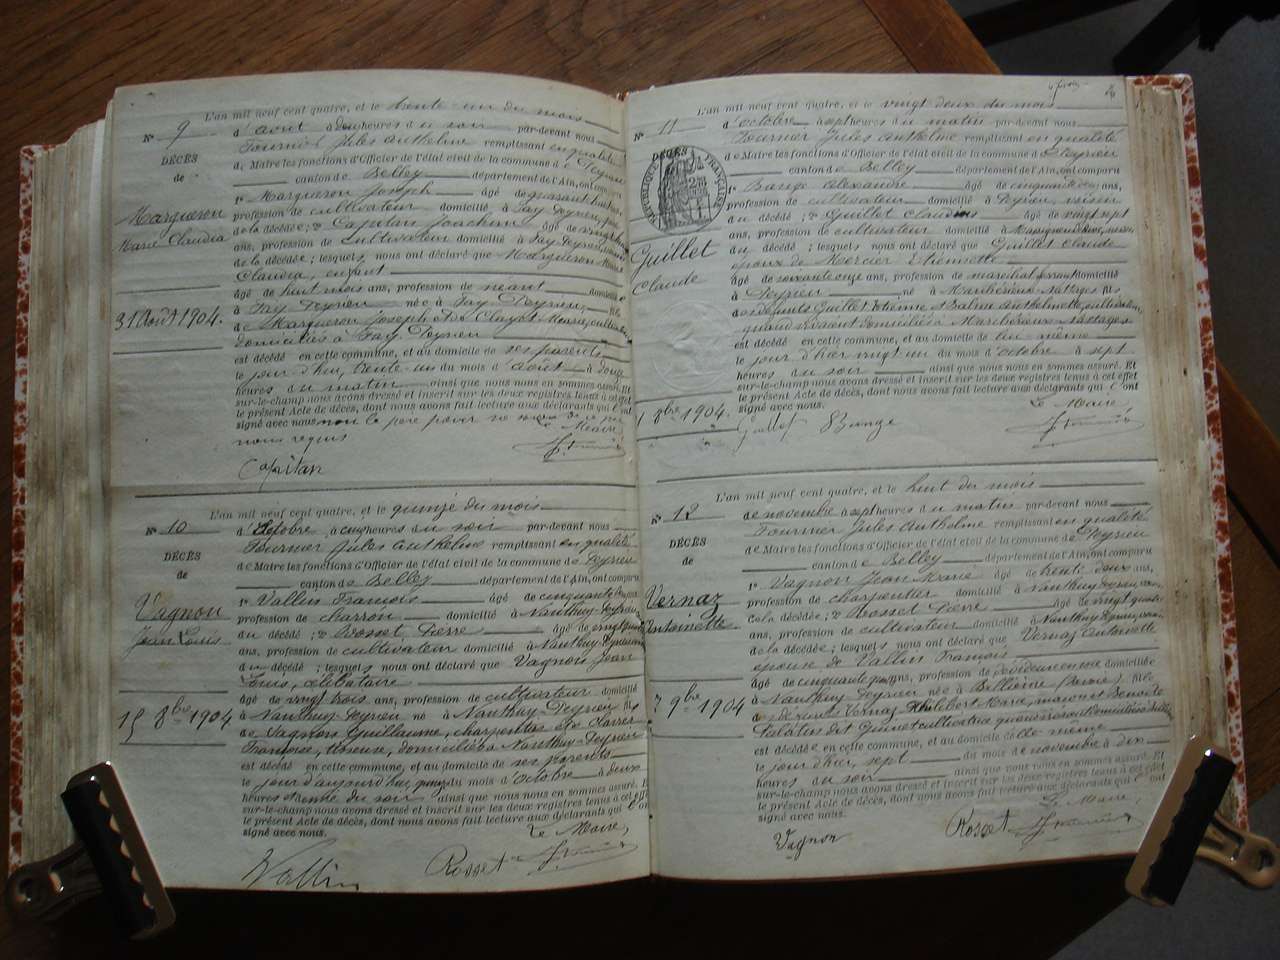 L'an mil neuf cent quatre, et le trente un du mois
N° 9
d'août à douze heures du soir par-devant nous
DÉCÈS
Fournier Jules Anthelme remplissant en qualité
de
de Maire les fonctions d'Officier de l'état civil de la commune de Peyrieu
canton de Belley département de l'Ain, ont comparu
Margueron
Marie Claudia
1° Margueron Joseph âgé de quarante huit ans,
profession de cultivateur domicilié à Fay Peyrieu, père
de la décédée ; 2° Capitan Joachim âgé de
ans, profession de cultivateur domicilié à Fay Peyrieu
de la décédée ; lesquels nous ont déclaré que Margueron Marie
Claudia, enfant
âgé de huit mois ans, profession de néant domicilié
31 Août 1904.
à Fay Peyrieu née à Fay Peyrieu, fille
de Margueron Joseph et de Clayet Marie, cultivateurs
domiciliés à Fay Peyrieu
est décédé en cette commune, et au domicile de ses parents
le jour d'hui, trente un du mois d'août à douze
heures du matin ainsi que nous nous en sommes assuré. Et
sur-le-champ nous avons dressé et inscrit sur les deux registres tenus à cet effet
le présent Acte de décès, dont nous avons fait lecture aux déclarants qui l'ont
signé avec nous non le père pour ne
nous requis
Le Maire
Capitan
L'an mil neuf cent quatre, et le quinze du mois
N° 10
d'octobre, à cinq heures du soir par-devant nous
DÉCÈS
Fournier Jules Anthelme remplissant en qualité
de
de Maire les fonctions d'Officier de l'état civil de la commune de Peyrieu
canton de Belley département de l'Ain, ont comparu
Vagnon
Jean Louis
1° Vallin François âgé de cinquante ans,
profession de charron domicilié à Nanthuy-Peyrieu,
du décédé ; 2° Rosset Pierre âgé de vingt quatre
ans, profession de cultivateur domicilié à Nanthuy-Peyrieu
du décédé ; lesquels nous ont déclaré que Vagnon Jean
Louis, célibataire
âgé de vingt trois ans, profession de cultivateur domicilié
15 8bre 1904
à Nanthuy-Peyrieu né à Nanthuy-Peyrieu fils
de Vagnon Guillaume, charpentier et de
Françoise, domiciliés à Nanthuy-Peyrieu
est décédé en cette commune, et au domicile de ses parents
le jour d'aujourd'hui quinze du mois d'octobre à deux
heures et demie du soir ainsi que nous nous en sommes assuré. Et
sur-le-champ nous avons dressé et inscrit sur les deux registres tenus à cet effet
le présent Acte de décès, dont nous avons fait lecture aux déclarants qui l'ont
signé avec nous.
Le Maire,
Vallin Rosset
L'an mil neuf cent quatre, et le vingt deux du mois
N° 11
d'octobre à sept heures du matin par-devant nous
DÉCÈS
RÉPUBLIQUE FRANÇAISE
Fournier Jules Anthelme remplissant en qualité
de Maire les fonctions d'Officier de l'état civil de la commune de Peyrieu
canton de Belley département de l'Ain, ont comparu
1° Bange Alexandre âgé de cinquante ans,
profession de cultivateur domicilié à Peyrieu, voisin
du décédé ; 2° Guillet Claudius âgé de vingt sept
Guillet
Claude
ans, profession de cultivateur domicilié à
du décédé ; lesquels nous ont déclaré que Guillet Claude
époux de Mercier Etiennette
âgé de soixante ans, profession de maréchal ferrant domicilié
à Peyrieu né à
des défunts Guillet Etienne et Anthelmette, cultivateurs
quand vivaient domiciliés à
est décédé en cette commune, et au domicile de lui-même
le jour d'hier vingt un du mois d'octobre à sept
heures du soir ainsi que nous nous en sommes assuré. Et
sur-le-champ nous avons dressé et inscrit sur les deux registres tenus à cet effet
le présent Acte de décès, dont nous avons fait lecture aux déclarants qui l'ont
signé avec nous.
8bre 1904.
Le Maire
Bange
L'an mil neuf cent quatre, et le huit du mois
N° 12
de novembre à sept heures du matin par-devant nous
DÉCÈS
Fournier Jules Anthelme remplissant en qualité
de
de Maire les fonctions d'Officier de l'état civil de la commune de Peyrieu
canton de Belley département de l'Ain, ont comparu
Vernaz
Antoinette
1° Vagnon Jean Marie âgé de trente deux ans,
profession de charpentier domicilié à Nanthuy-Peyrieu,
de la décédée ; 2° Rosset Pierre âgé de vingt quatre
ans, profession de cultivateur domicilié à Nanthuy Peyrieu,
de la décédée ; lesquels nous ont déclaré que Vernaz Antoinette
épouse de Vallin François
âgé de cinquante ans, profession de domiciliée
9bre 1904
à Nanthuy-Peyrieu née à Billième (Savoie) fille
de défunts Vernaz Philibert Marie, maçon et Benoîte
est décédée en cette commune, et au domicile elle même
le jour d'hier, sept du mois de novembre à dix
heures du soir ainsi que nous nous en sommes assuré. Et
sur-le-champ nous avons dressé et inscrit sur les deux registres tenus à cet effet
le présent Acte de décès, dont nous avons fait lecture aux déclarants qui l'ont
signé avec nous.
Le Maire
Vagnon Rosset